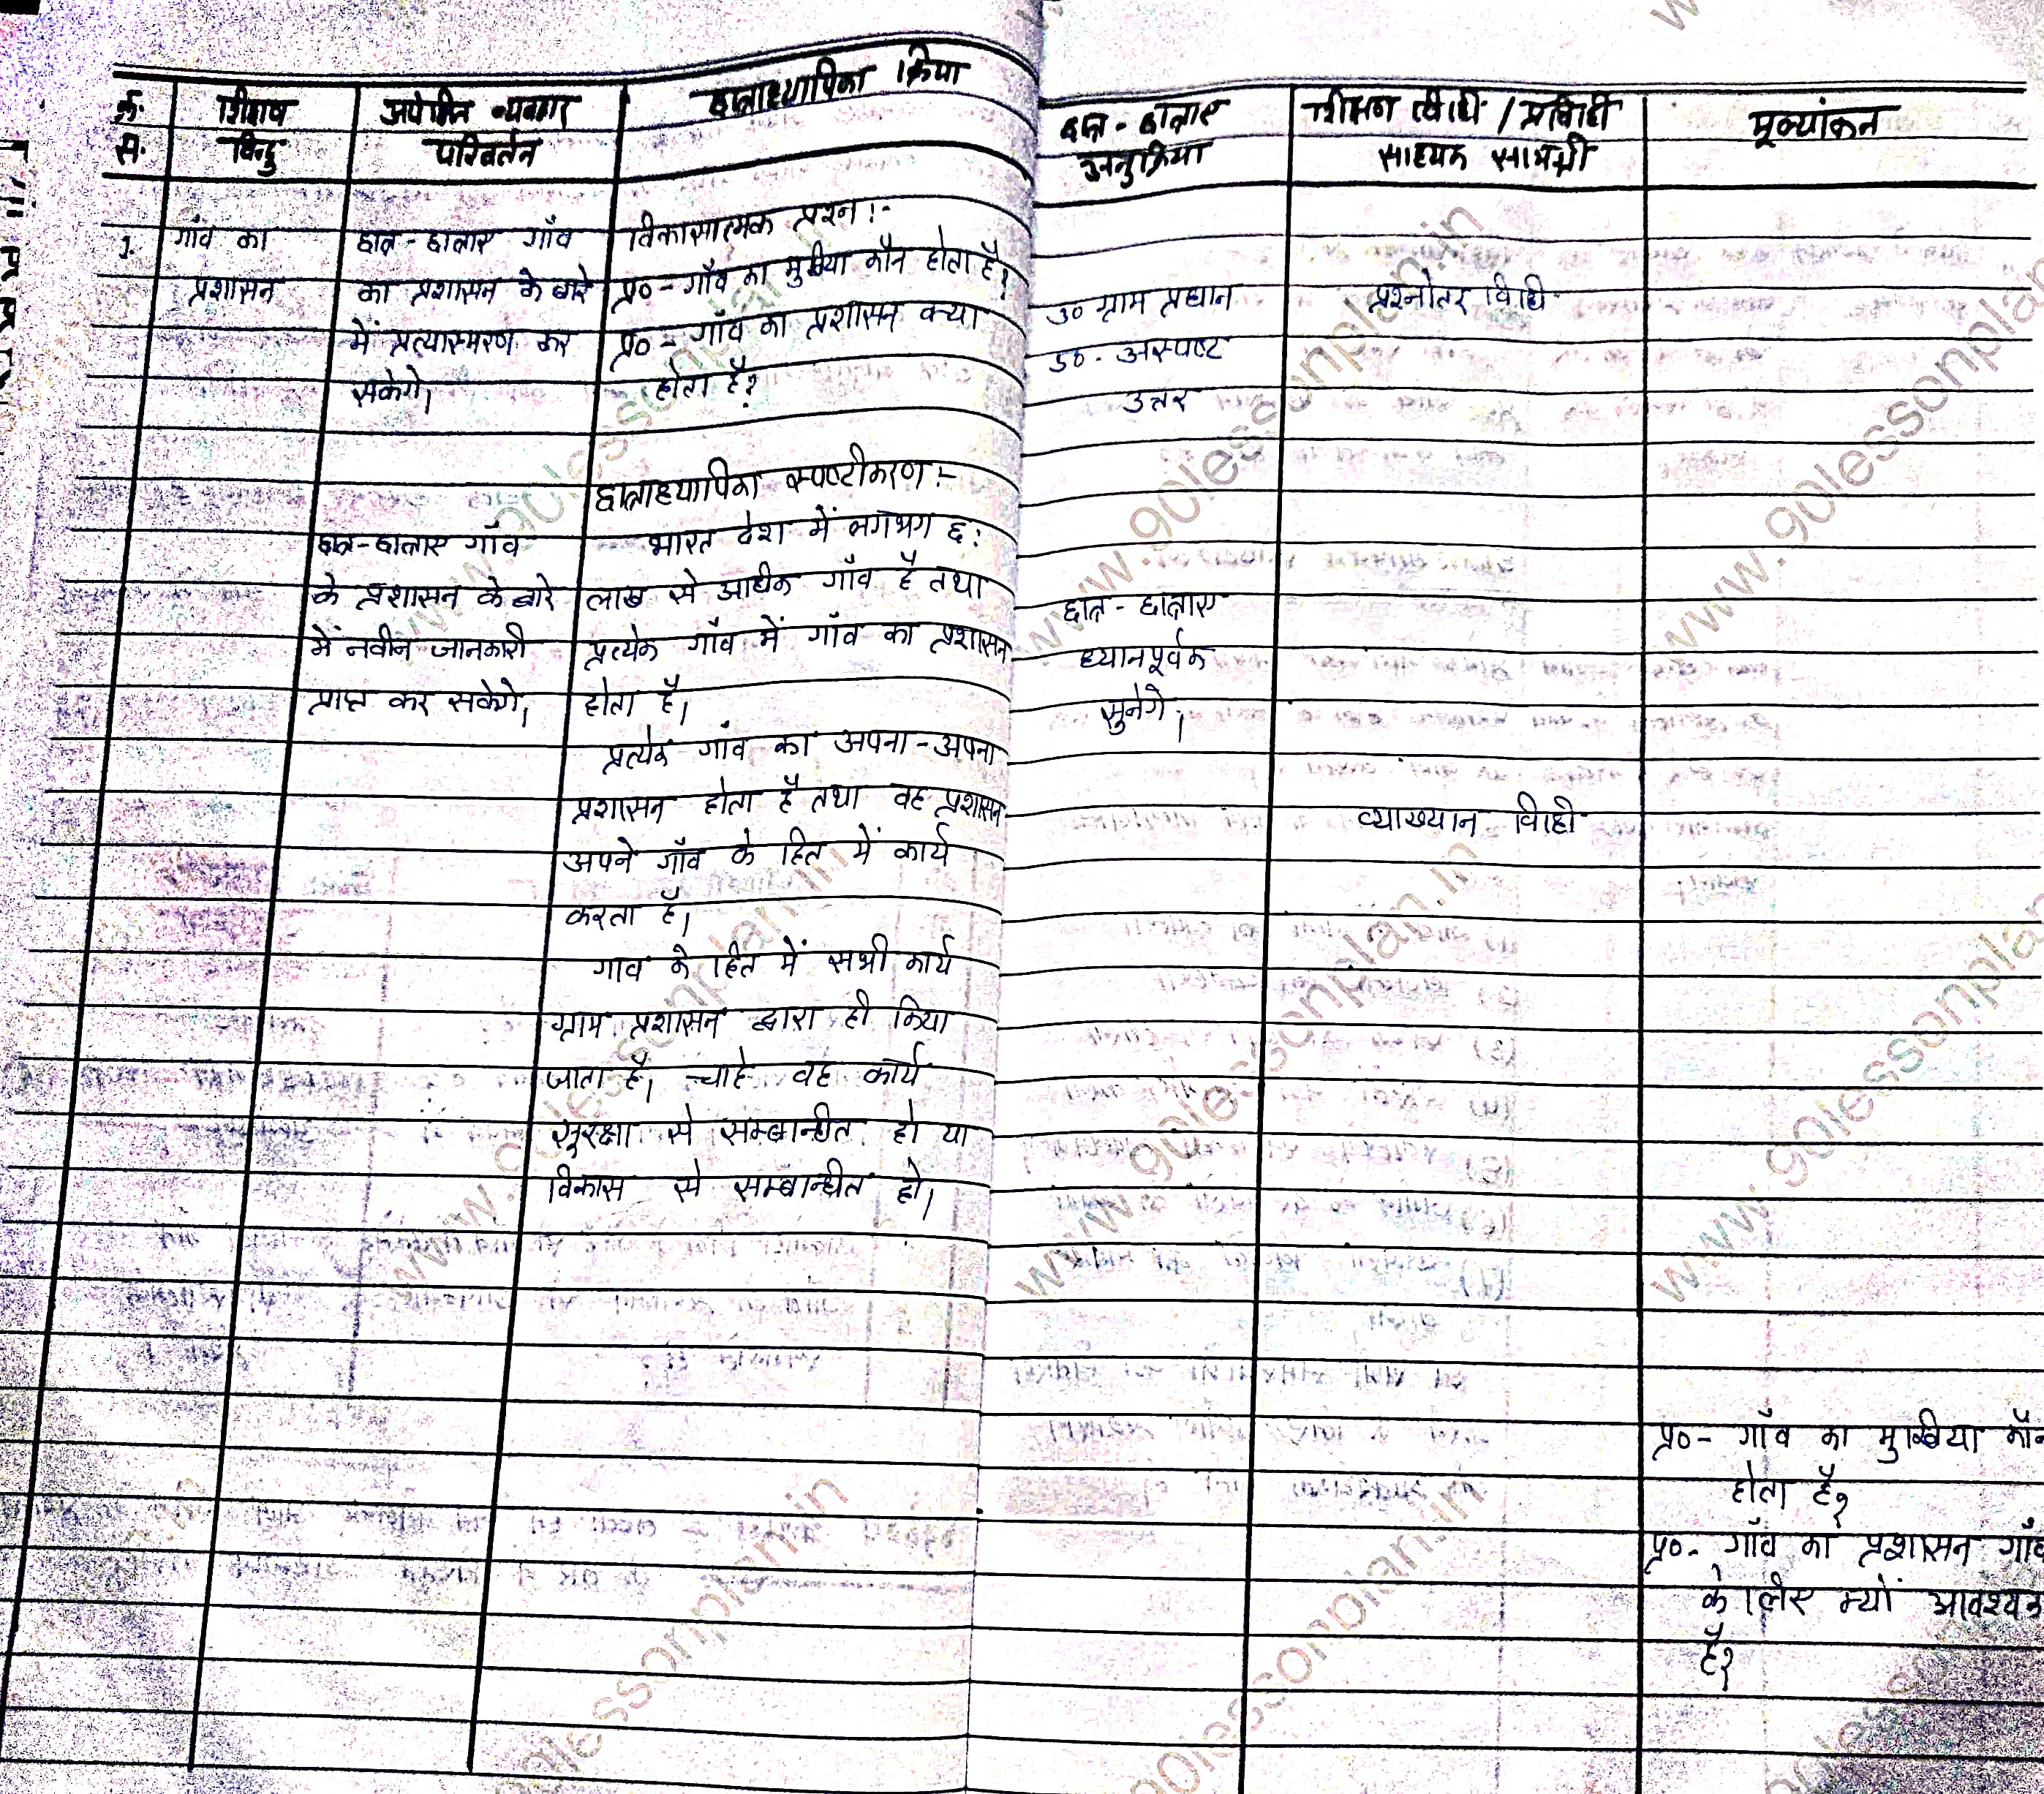 क्र. स.
शिक्षण बिन्दु
अपेक्षित व्यवहार परिवर्तन
छात्राध्यापिका क्रिया
छात्र - छात्राए अनुक्रिया
शिक्षण विधि / प्रविधी
साहयक सामग्री
मूल्यांकन
1.
गाँव का
प्रशासन
छात्र - छात्राए गाँव
का प्रशासन के बारे
में प्रत्यास्मरण कर
सकेगे।
विकासात्मक प्रश्न :-
प्र० - गाँव का मुखिया कौन होता है?
प्र० - गाँव का प्रशासन क्या
होता है?
उ० ग्राम प्रधान
उ० - अस्पष्ट
उत्तर
प्रश्नोतर विधि
छात्र - छात्राए गाँव
के प्रशासन के बारे
में नवीन जानकारी
प्राप्त कर सकेगे।
छात्राध्यापिका स्पष्टीकरण :-
भारत देश में लगभग छ:
लाख से अधिक गाँव है तथा
प्रत्येक गाँव में गाँव का प्रशासन
होता है।
प्रत्येक गाँव का अपना - अपना
प्रशासन होता है तथा वह प्रशासन
अपने गाँव के हित में कार्य
करता है।
गाव के हित में सभी कार्य
ग्राम प्रशासन द्वारा ही किया
जाता है। चाहे वह कार्य
सुरक्षा से सम्बान्धीत हो या
विकास से सम्बान्धीत हो।
छात्र - छात्राए
ध्यानपूर्वक
सुनेगे।
व्याख्यान विधी
प्र० - गाँव का मुखिया कौन
होता है?
प्र० - गाँव का प्रशासन गाँव
के लिए क्यों आवश्यक
है?
www.90lessonplan.in